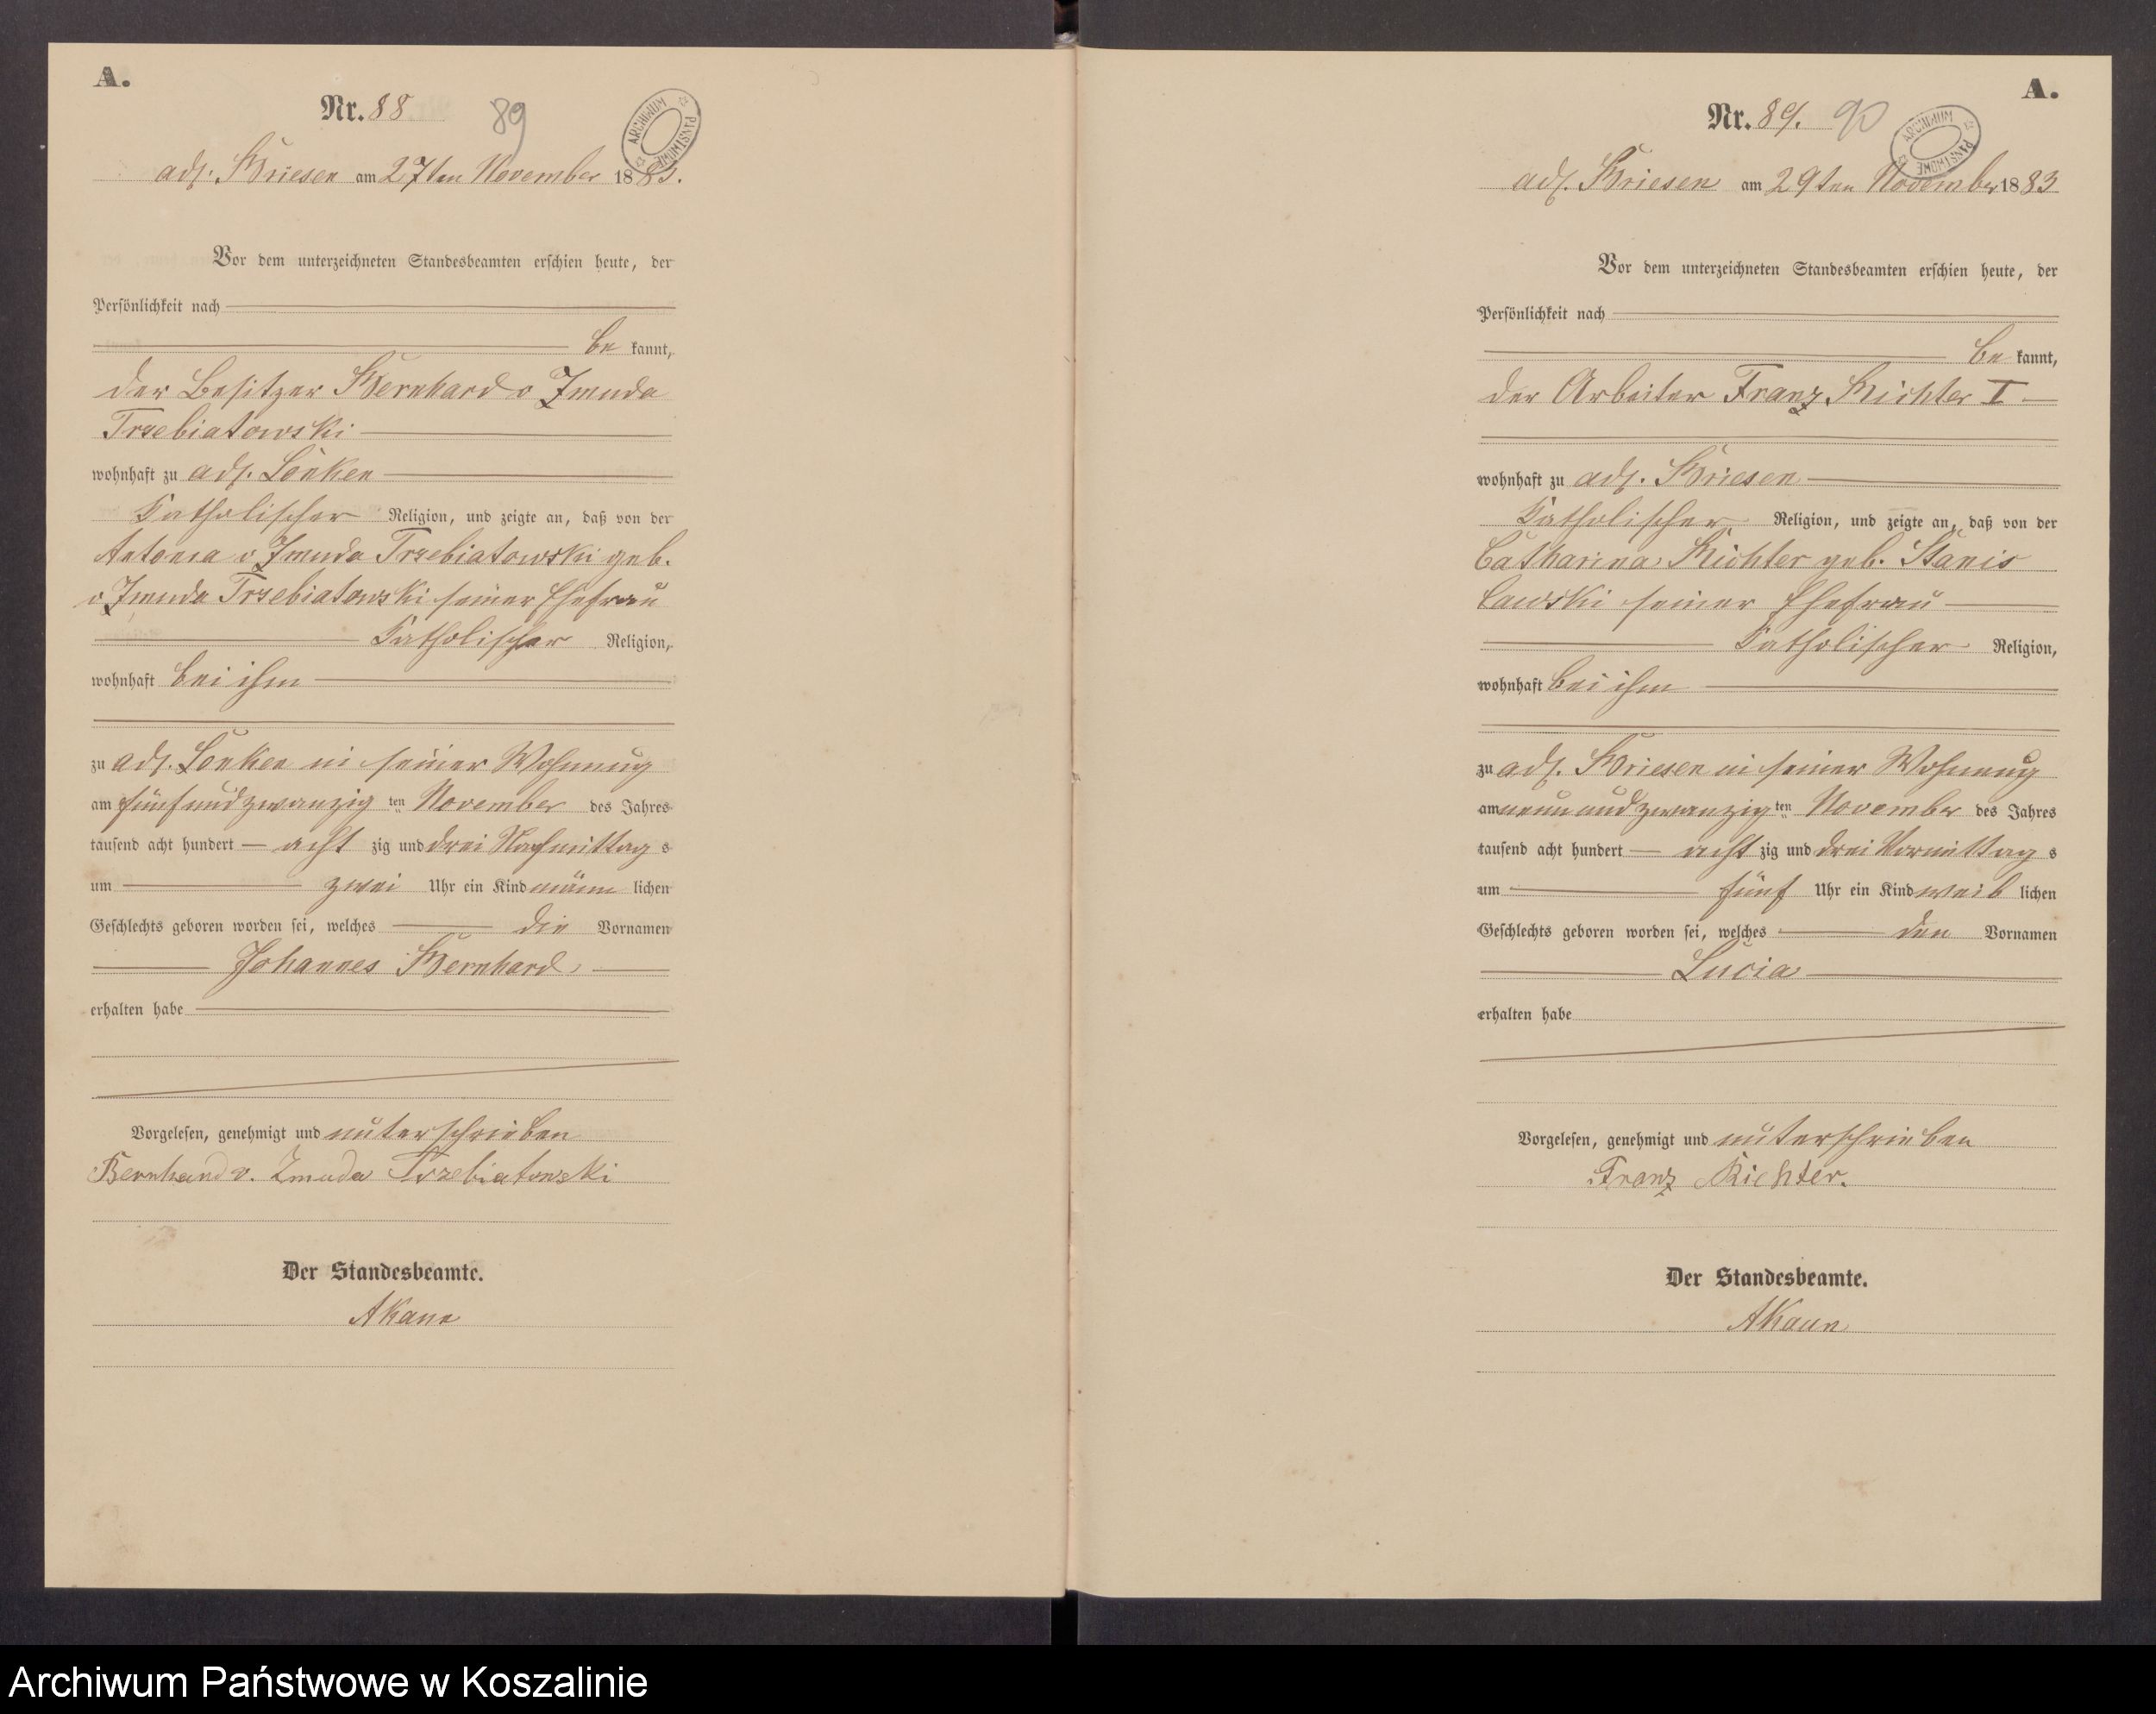 A.
Nr. 88
89
ARCHIWUM PAŃSTWOWE
adl. Briesen am 27ten November 1883.
Vor dem unterzeichneten Standesbeamten erschien heute, der
Persönlichkeit nach
be kannt,
der Besitzer Bernhard v Zmuda
Trzebiatowski
wohnhaft zu adl. Lonken
Katholischer Religion, und zeigte an, daß von der
Antonia v Zmuda Trzebiatowski geb.
v Zmuda Trzebiatowski seiner Ehefrau
Katholischer Religion,
wohnhaft bei ihm
zu adl. Lonken in seiner Wohnung
am fünfundzwanzig ten November des Jahres
tausend acht hundert acht zig und drei Nachmittag s
um zwei Uhr ein Kind männ lichen
Geschlechts geboren worden sei, welches die Vornamen
Johannes Bernhard
erhalten habe
Vorgelesen, genehmigt und unterschrieben
Bernhard v. Zmuda Trzebiatowski
Der Standesbeamte.
AKann
A.
Nr. 89. 90
ARCHIWUM PAŃSTWOWE
adl. Briesen am 29ten November 1883
Vor dem unterzeichneten Standesbeamten erschien heute, der
Persönlichkeit nach
be kannt,
der Arbeiter Franz Richter I
wohnhaft zu adl. Briesen
Katholischer Religion, und zeigte an, daß von der
Catharina Richter geb. Stanis
lawski seiner Ehefrau
Katholischer Religion,
wohnhaft bei ihm
zu adl. Briesen in seiner Wohnung
am neunundzwanzig ten November des Jahres
tausend acht hundert acht zig und drei Vormittag s
um fünf Uhr ein Kind weib lichen
Geschlechts geboren worden sei, welches den Vornamen
Lucia
erhalten habe
Vorgelesen, genehmigt und unterschrieben
Franz Richter.
Der Standesbeamte.
AKann
Archiwum Państwowe w Koszalinie